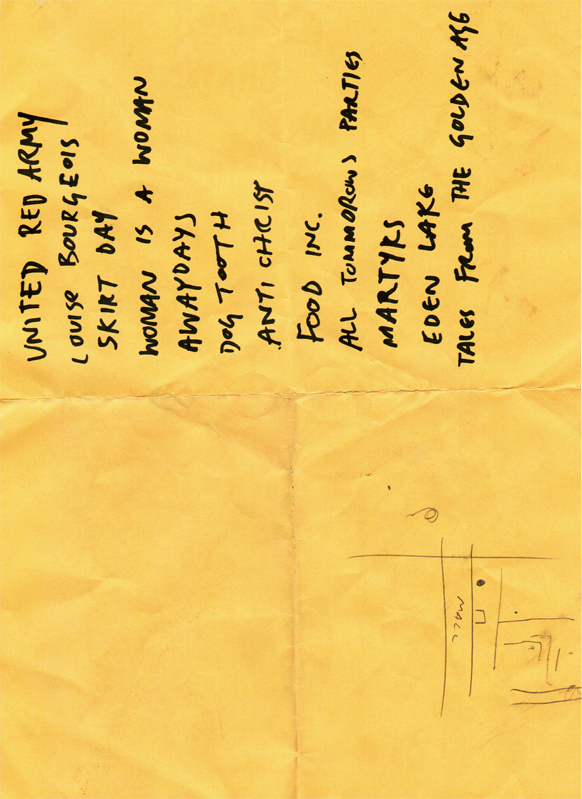 UNITED RED ARMY
LOUISE BOURGEOIS
SKIRT DAY
WOMAN IS A WOMAN
AWAYDAYS
DOG TOOTH
ANTI CHRIST
FOOD INC.
ALL TOMMOROWS PARTIES
MARTYRS
EDEN LAKE
TALES FROM THE GOLDEN AGE